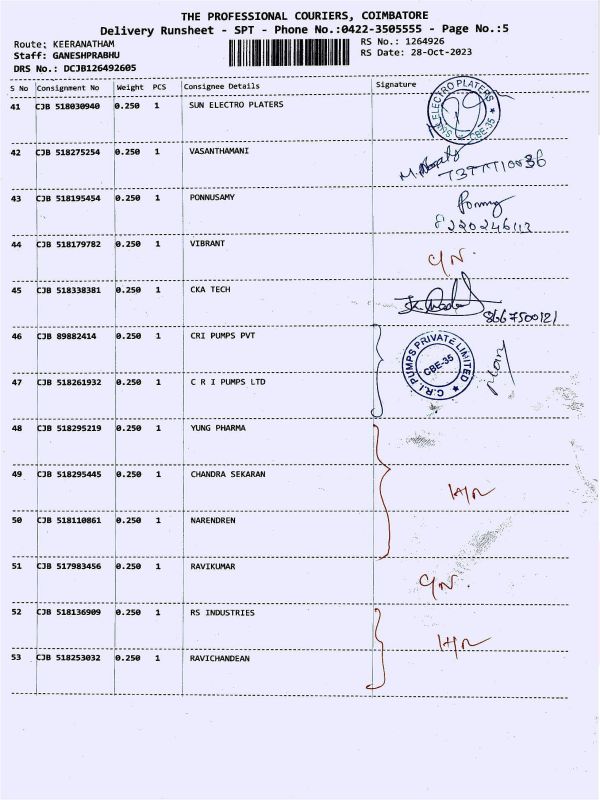 THE PROFESSIONAL COURIERS, COIMBATORE
Delivery Runsheet - SPT - Phone No.:0422-3505555 - Page No.:5
Route: KEERANATHAM
RS No.: 1264926
Staff: GANESHPRABHU
RS Date: 28-Oct-2023
DRS No.: DCJB126492605
S No Consignment No Weight PCS Consignee Details Signature
41 CJB 518030940 0.250 1 SUN ELECTRO PLATERS
SUN ELECTRO PLATERS CBE-35
42 CJB 518275254 0.250 1 VASANTHAMANI
43 CJB 518195454 0.250 1 PONNUSAMY
Ponny
8220246112
44 CJB 518179782 0.250 1 VIBRANT
C/N.
45 CJB 518338381 0.250 1 CKA TECH
8667500121
46 CJB 89882414 0.250 1 CRI PUMPS PVT
C.R.I. PUMPS PRIVATE LIMITED CBE-35
47 CJB 518261932 0.250 1 C R I PUMPS LTD
48 CJB 518295219 0.250 1 YUNG PHARMA
49 CJB 518295445 0.250 1 CHANDRA SEKARAN
50 CJB 518110861 0.250 1 NARENDREN
51 CJB 517983456 0.250 1 RAVIKUMAR
C/N.
52 CJB 518136909 0.250 1 RS INDUSTRIES
53 CJB 518253032 0.250 1 RAVICHANDEAN